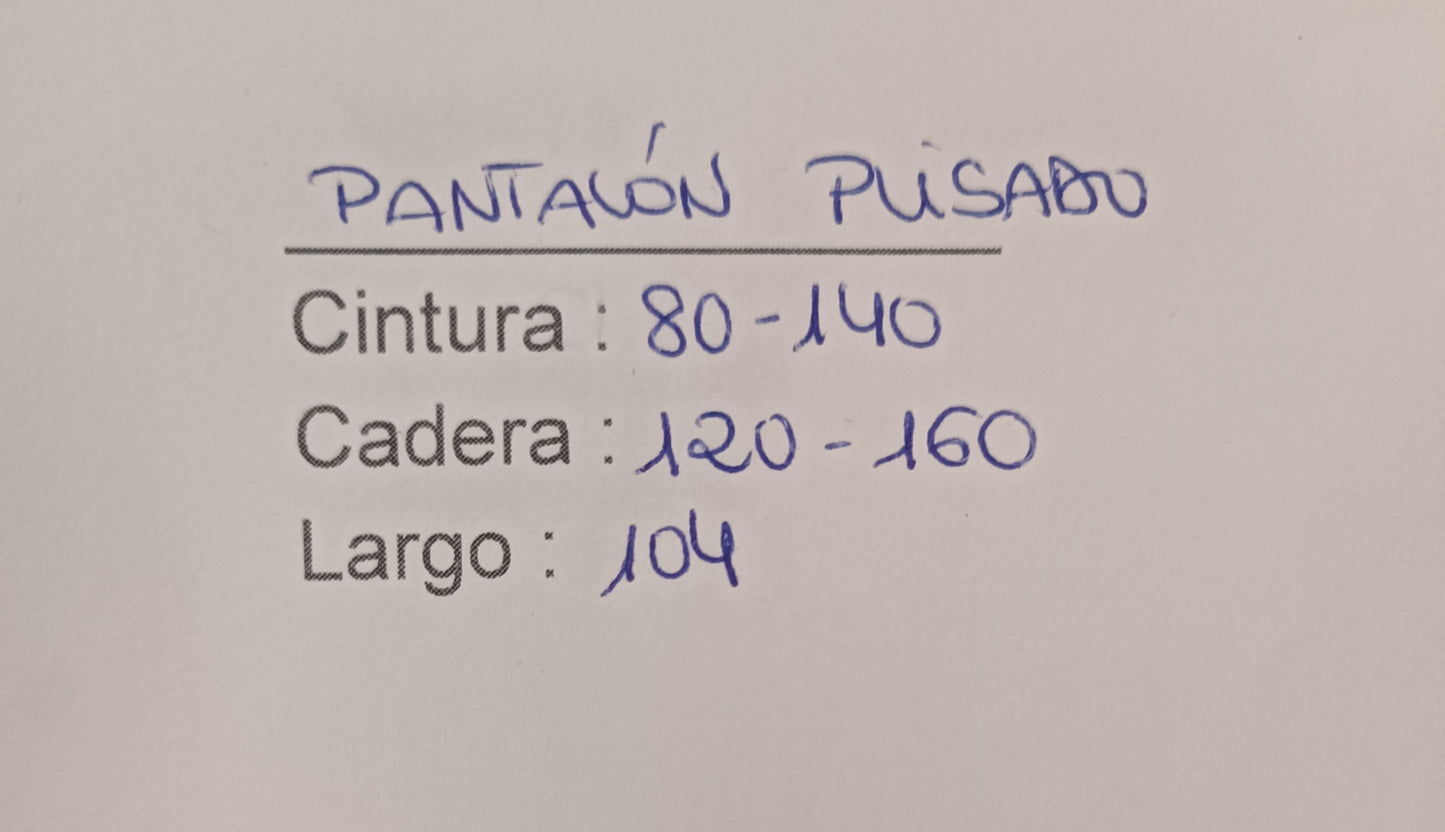 PANTALÓN PLISADO
Cintura : 80-140
Cadera : 120 - 160
Largo : 104